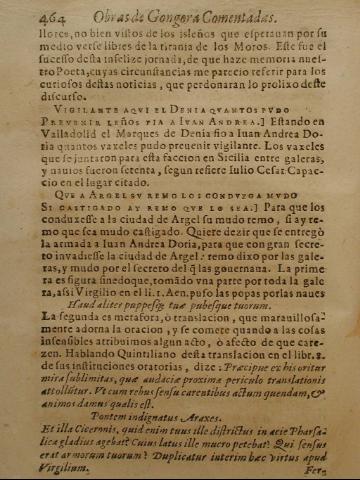 464 Obras de Gongora Comentadas.
llores, no bien vistos de los isleños que esperauan por su
medio verse libres de la tirania de los Moros. Este fue el
sucesso desta infelize jornada, de que haze memoria nues-
tro Poeta, cuyas circunstancias me parecio referir para los
curiosos destas noticias, que perdonaran lo prolixo deste
discurso.
VIGILANTE AQVI EL DENIA QVANTOS PVDO
PREVENIR LEÑOS FIA A IVAN ANDREA.] Estando en
Valladolid el Marques de Denia fio a Iuan Andrea Do-
ria quantos vaxeles pudo preuenir vigilante. Los vaxeles
que se juntaron para esta faccion en Sicilia entre galeras,
y nauios fueron setenta, segun refiere Iulio Cesar Capac-
cio en el lugar citado.
QVE A ARGEL SV REMO LOS CONDVZGA MVDO
SI CASTIGADO AY REMO QVE LO SEA.] Para que los
conduxesse a la ciudad de Argel su mudo remo, si ay re-
mo que sea mudo castigado. Quiere dezir que se entregò
la armada a Iuan Andrea Doria, para que con gran secre-
to inuadiesse la ciudad de Argel: remo dixo por las gale-
ras, y mudo por el secreto del q̃ las gouernaua. La prime
ra es figura sinedoque, tomãdo vna parte por toda la gale
ra, assi Virgilio en el li. 1. Aen. puso las popas por las naues
Haud aliter puppesq; tuæ pubesque tuorum.
La segunda es metafora, ò translacion, que marauillosa-
mente adorna la oracion, y se comete quando a las cosas
insensibles atribuimos algun acto, ò afecto de que care-
zen. Hablando Quintiliano desta translacion en el libr. 8.
de sus instituciones oratorias, dize: Præcipue ex his oritur
mira sublimitas, quæ audaciæ proxima periculo translationis
attollũtur. Vt cum rebus sensu carentibus actum quendam, &
animos damus qualis est.
Pontem indignatus Araxes.
Et illa Ciceronis, quid enim tuus ille districtus in acie Pharsa-
lica gladius agebat? Cuius latus ille mucro petebat? Qui sensus
erat armorum tuorum? Duplicatur interim hæc virtus apud
Virgilium. Fer-